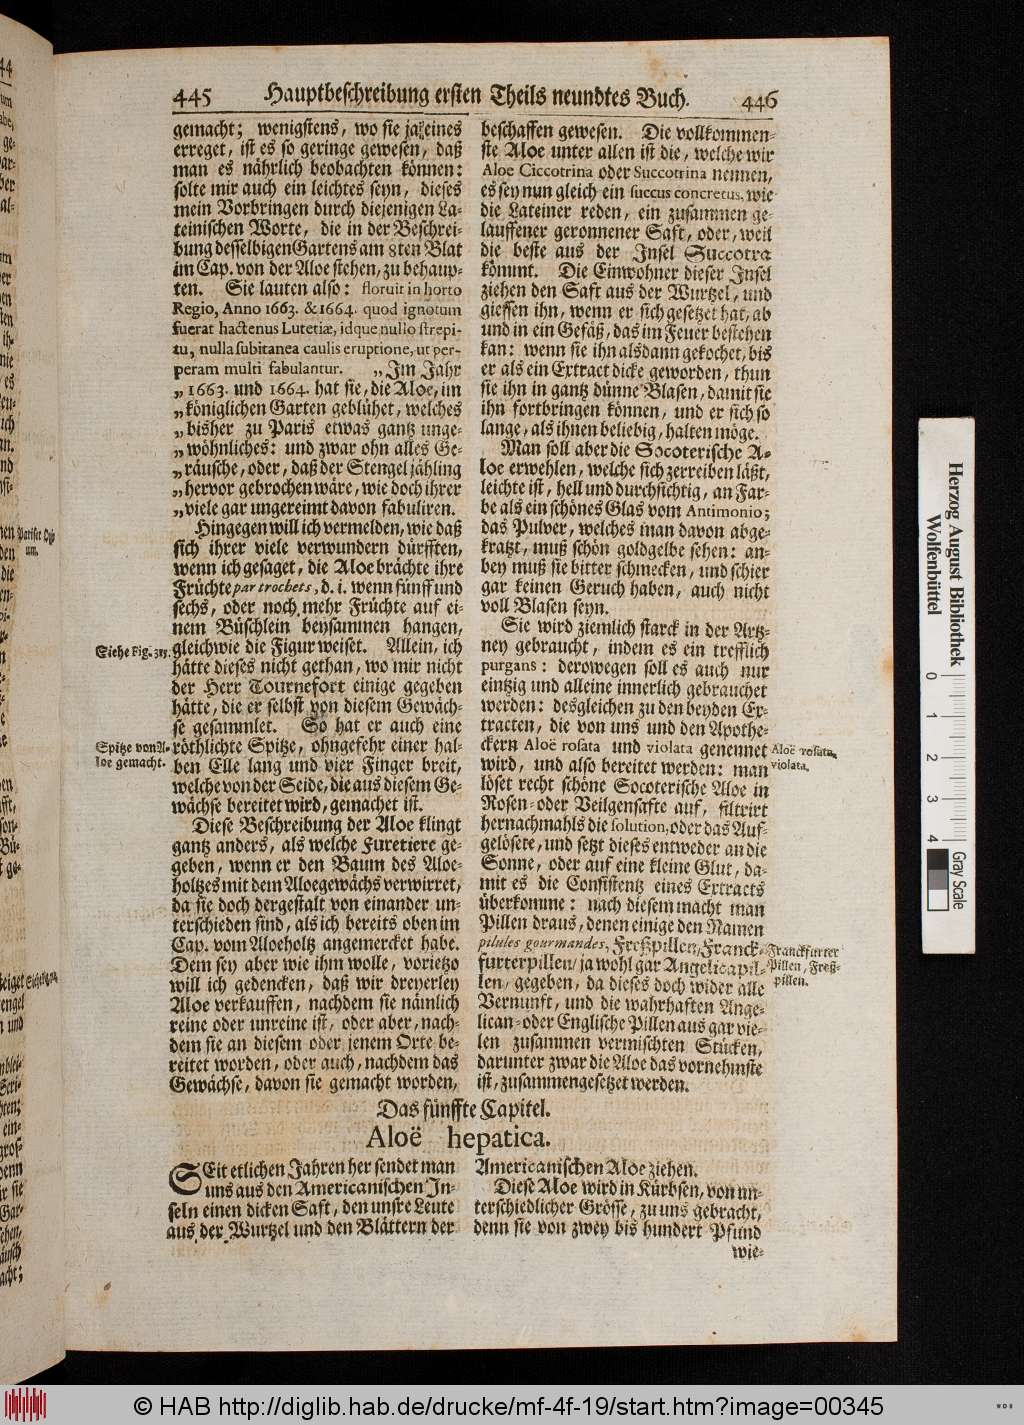 445 Hauptbeschreibung ersten Theils neundtes Buch. 446
gemacht; wenigstens, wo sie ja eines
erreget, ist es so geringe gewesen, daß
man es nährlich beobachten können:
solte mir auch ein leichtes seyn, dieses
mein Vorbringen durch diejenigen La-
teinischen Worte, die in der Beschrei-
bung desselbigen Gartens am 8ten Blat
im Cap. von der Aloe stehen, zu behaup-
ten. Sie lauten also: floruit in horto
Regio, Anno 1663. & 1664. quod ignotum
fuerat hactenus Lutetiæ, idque nullo strepi-
tu, nulla subitanea caulis eruptione, ut per-
peram multi fabulantur. „Im Jahr
„1663. und 1664. hat sie, die Aloe, im
„königlichen Garten geblühet, welches
„bisher zu Paris etwas gantz unge-
„wöhnliches: und zwar ohn alles Ge-
„räusche, oder, daß der Stengel jähling
„hervor gebrochen wäre, wie doch ihrer
„viele gar ungereimt davon fabuliren.
Hingegen will ich vermelden, wie daß
sich ihrer viele verwundern dürfften,
wenn ich gesaget, die Aloe brächte ihre
Früchte par trochets, d. i. wenn fünff und
sechs, oder noch mehr Früchte auf ei-
nem Büschlein beysammen hangen,
Siehe Fig. 315.
gleichwie die Figur weiset. Allein, ich
hätte dieses nicht gethan, wo mir nicht
der Herr Tournefort einige gegeben
hätte, die er selbst von diesem Gewäch-
se gesammlet. So hat er auch eine
Spitze von A-
loe gemacht.
röthlichte Spitze, ohngefehr einer hal-
ben Elle lang und vier Finger breit,
welche von der Seide, die aus diesem Ge-
wächse bereitet wird, gemachet ist.
Diese Beschreibung der Aloe klingt
gantz anders, als welche Furetiere ge-
geben, wenn er den Baum des Aloe-
holtzes mit dem Aloegewächs verwirret,
da sie doch dergestalt von einander un-
terschieden sind, als ich bereits oben im
Cap. vom Aloeholtz angemercket habe.
Dem sey aber wie ihm wolle, vorietzo
will ich gedencken, daß wir dreyerley
Aloe verkauffen, nachdem sie nämlich
reine oder unreine ist, oder aber, nach-
dem sie an diesem oder jenem Orte be-
reitet worden, oder auch, nachdem das
Gewächse, davon sie gemacht worden,
beschaffen gewesen. Die vollkommen-
ste Aloe unter allen ist die, welche wir
Aloe Ciccotrina oder Succotrina nennen,
es sey nun gleich ein succus concretus, wie
die Lateiner reden, ein zusammen ge-
lauffener geronnener Saft, oder, weil
die beste aus der Insel Succotra
kömmt. Die Einwohner dieser Insel
ziehen den Saft aus der Wurtzel, und
giessen ihn, wenn er sich gesetzet hat, ab
und in ein Gefäß, das im Feuer bestehen
kan: wenn sie ihn alsdann gekochet, bis
er als ein Extract dicke geworden, thun
sie ihn in gantz dünne Blasen, damit sie
ihn fortbringen können, und er sich so
lange, als ihnen beliebig, halten möge.
Man soll aber die Socoterische A-
loe erwehlen, welche sich zerreiben läßt,
leichte ist, hell und durchsichtig, an Far-
be als ein schönes Glas vom Antimonio;
das Pulver, welches man davon abge-
kratzt, muß schön goldgelbe sehen: an-
bey muß sie bitter schmecken, und schier
gar keinen Geruch haben, auch nicht
voll Blasen seyn.
Sie wird ziemlich starck in der Artz-
ney gebraucht, indem es ein trefflich
purgans: derowegen soll es auch nur
eintzig und alleine innerlich gebrauchet
werden: desgleichen zu den beyden Ex-
tracten, die von uns und den Apothe-
ckern Aloë rosata und violata genennet
Aloë rosata,
violata.
wird, und also bereitet werden: man
löset recht schöne Socoterische Aloe in
Rosen- oder Veilgensafte auf, filtrirt
hernachmahls die solution, oder das Auf-
gelösete, und setzt dieses entweder an die
Sonne, oder auf eine kleine Glut, da-
mit es die Consistentz eines Extracts
überkomme: nach diesem macht man
Pillen draus, denen einige den Namen
pilules gourmandes, Freßpillen, Franck-
Franckfurter
Pillen, Freß-
pillen.
furterpillen/ ja wohl gar Angelicapil-
len, gegeben, da dieses doch wider alle
Vernunft, und die wahrhaften Ange-
lican- oder Englische Pillen aus gar vie-
len zusammen vermischten Stücken,
darunter zwar die Aloe das vornehmste
ist, zusammengesetzet werden.
Das fünffte Capitel.
Aloë hepatica.
SEit etlichen Jahren her sendet man
uns aus den Americanischen In-
seln einen dicken Saft, den unsre Leute
aus der Wurtzel und den Blättern der
Americanischen Aloe ziehen.
Diese Aloe wird in Kürbsen, von un-
terschiedlicher Grösse, zu uns gebracht,
denn sie von zwey bis hundert Pfund
wie-
Herzog August Bibliothek
Wolfenbüttel
0 1 2 3 4
Gray Scale
© HAB http://diglib.hab.de/drucke/mf-4f-19/start.htm?image=00345